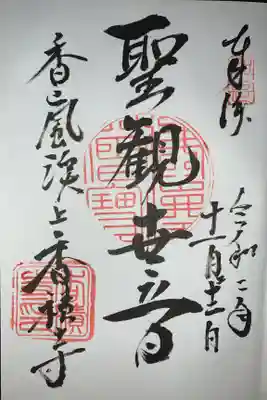 奉拝
令和二年
十一月十二日
聖観世音
香嵐渓上香積寺